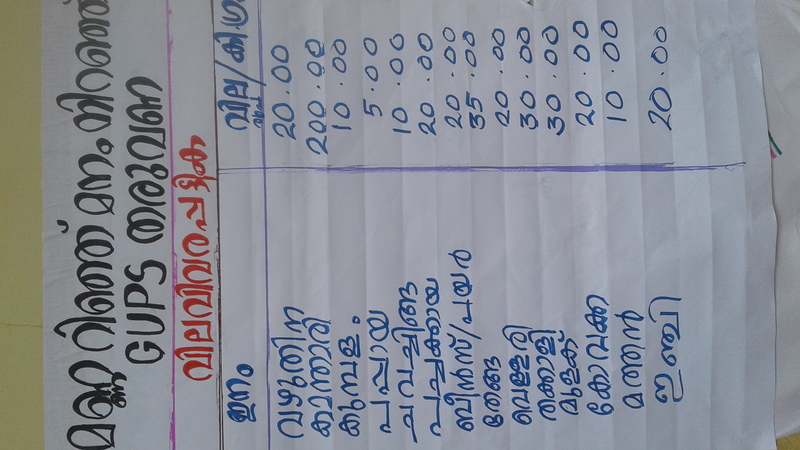 മണ്ണറിഞ്ഞ് മനം നിറഞ്ഞ്
GUPS തരുവണ
വിലവിവരപട്ടിക
ഇനം വില/കി.ഗ്രാ
വഴുതിന 20.00
കാന്താരി 200.00
കുമ്പളം 10.00
പപ്പായ 5.00
ചുവച്ചീങ്ങ 10.00
പച്ചക്കായ 20.00
ബീൻസ്/പയർ 20.00
തേങ്ങ 35.00
വെള്ളരി 20.00
തക്കാളി 30.00
മുളക് 30.00
കോവക്ക 20.00
മത്തൻ 10.00
ഇഞ്ചി 20.00